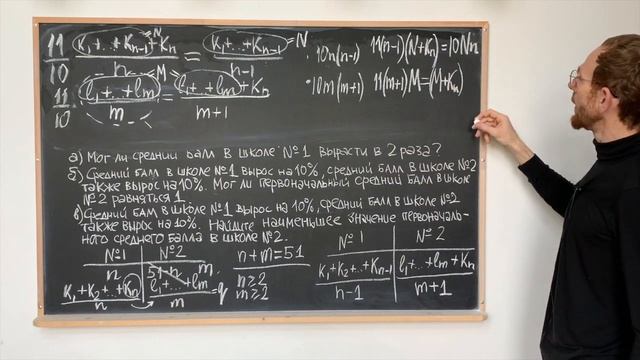 11/10 · (k₁+...+kₙ₋₁+kₙ)/n = (k₁+...+kₙ₋₁)/(n-1)
N
N
· 10n(n-1)
11(n-1)(N+kₙ)=10Nn
11/10 · (l₁+...+lₘ)/m = (l₁+...+lₘ+kₙ)/(m+1)
M
· 10m(m+1)
11(m+1)M=(M+kₙ)
а) Мог ли средний балл в школе №1 вырасти в 2 раза?
б) Средний балл в школе №1 вырос на 10%, средний балл в школе №2
также вырос на 10%. Мог ли первоначальный средний балл в школе
№2 равняться 1.
в) Средний балл в школе №1 вырос на 10%, средний балл в школе №2
также вырос на 10%. Найдите наименьшее значение первоначаль-
ного среднего балла в школе №2.
№1 №2
n 51-n m
(k₁+k₂+...+kₙ)/n
(l₁+...+lₘ)/m = q
n+m=51
n≥2
m≥2
№1 №2
(k₁+k₂+...+kₙ₋₁)/(n-1)
(l₁+...+lₘ+kₙ)/(m+1)